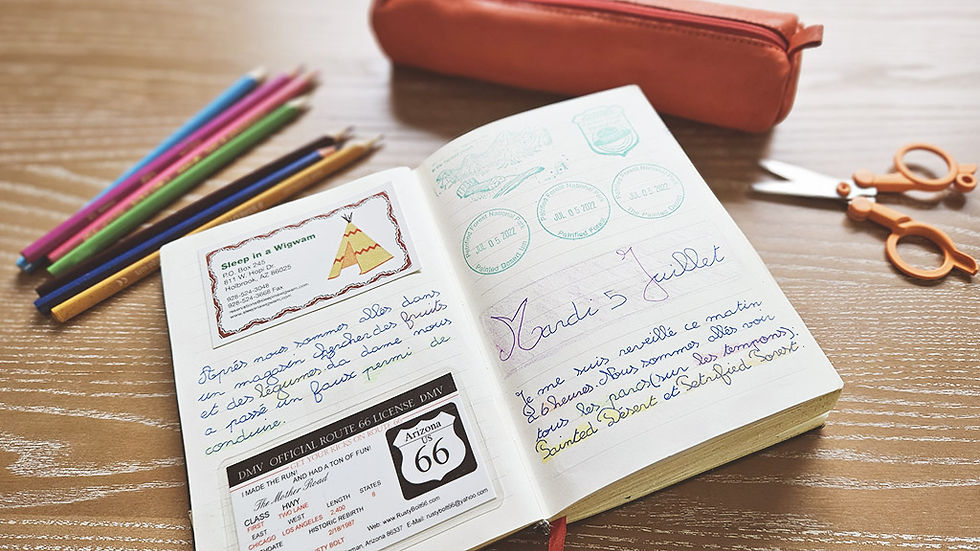 Sleep in a Wigwam
P.O. Box 245
811 W. Hopi Dr.
Holbrook, AZ 86025
928-524-3048
928-524-3668 Fax
www.sleepinawigwam.com
Après nous sommes allés dans
un magasin chercher des fruits
et des légumes. La dame nous
a passé un faux permi de
conduire.
DMV OFFICIAL ROUTE 66 LICENSE DMV
GET YOUR KICKS ON ROUTE 66
I MADE THE RUN!
AND HAD A TON OF FUN!
The Mother Road
CLASS HWY LENGTH STATES
FIRST TWO LANE 2,400 8
EAST WEST HISTORIC REBIRTH
CHICAGO LOS ANGELES 2/18/1987
RUSTY BOLT
Web: www.RustyBolt66.com
Arizona 86337 E-Mail: rustybolt66@yahoo.com
Arizona
US
66
Painted Forest National Park
JUL 05 2022
Painted Desert
JUL 05 2022
JUL 05 2022
Mardi 5 Juillet
Je me suis reveillé ce matin
à 6 heures. Nous sommes allés voir
tous les parcs (sur les tempons):
Painted Desert et Petrified Forest.